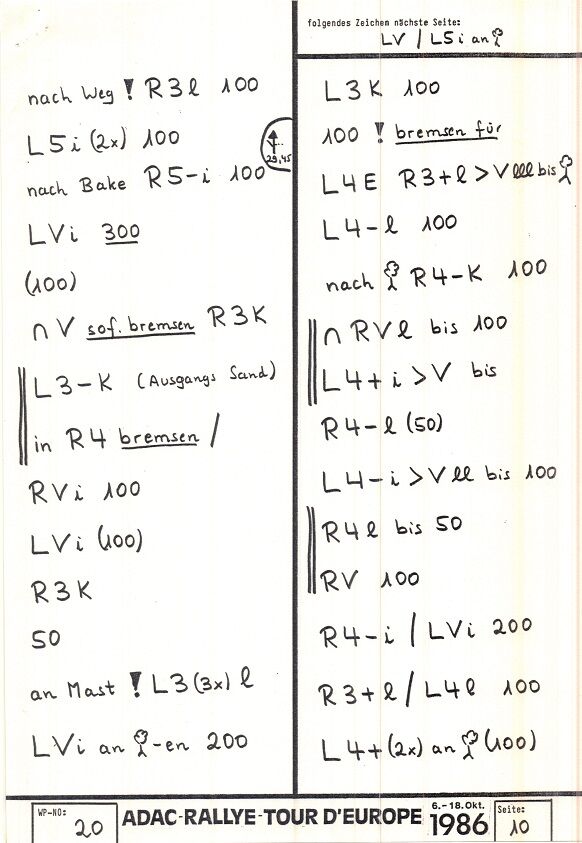 folgendes Zeichen nächste Seite:
LV / L5i an
nach Weg ! R3l 100
L5i (2x) 100
29,45
nach Bake R5-i 100
LVi 300
(100)
∩ V sof. bremsen R3K
L3-K (Ausgangs Sand)
in R4 bremsen /
RVi 100
LVi (100)
R3K
50
an Mast ! L3 (3x) l
LVi an -en 200
L3K 100
100 ! bremsen für
L4E R3+l > V lll bis
L4-l 100
nach R4-K 100
∩ RVl bis 100
L4+i > V bis
R4-l (50)
L4-i > V ll bis 100
R4l bis 50
RV 100
R4-i / LVi 200
R3+l / L4l 100
L4+(2x) an (100)
WP-NO: 20
ADAC-RALLYE-TOUR D'EUROPE
6.-18.Okt. 1986
Seite: 10